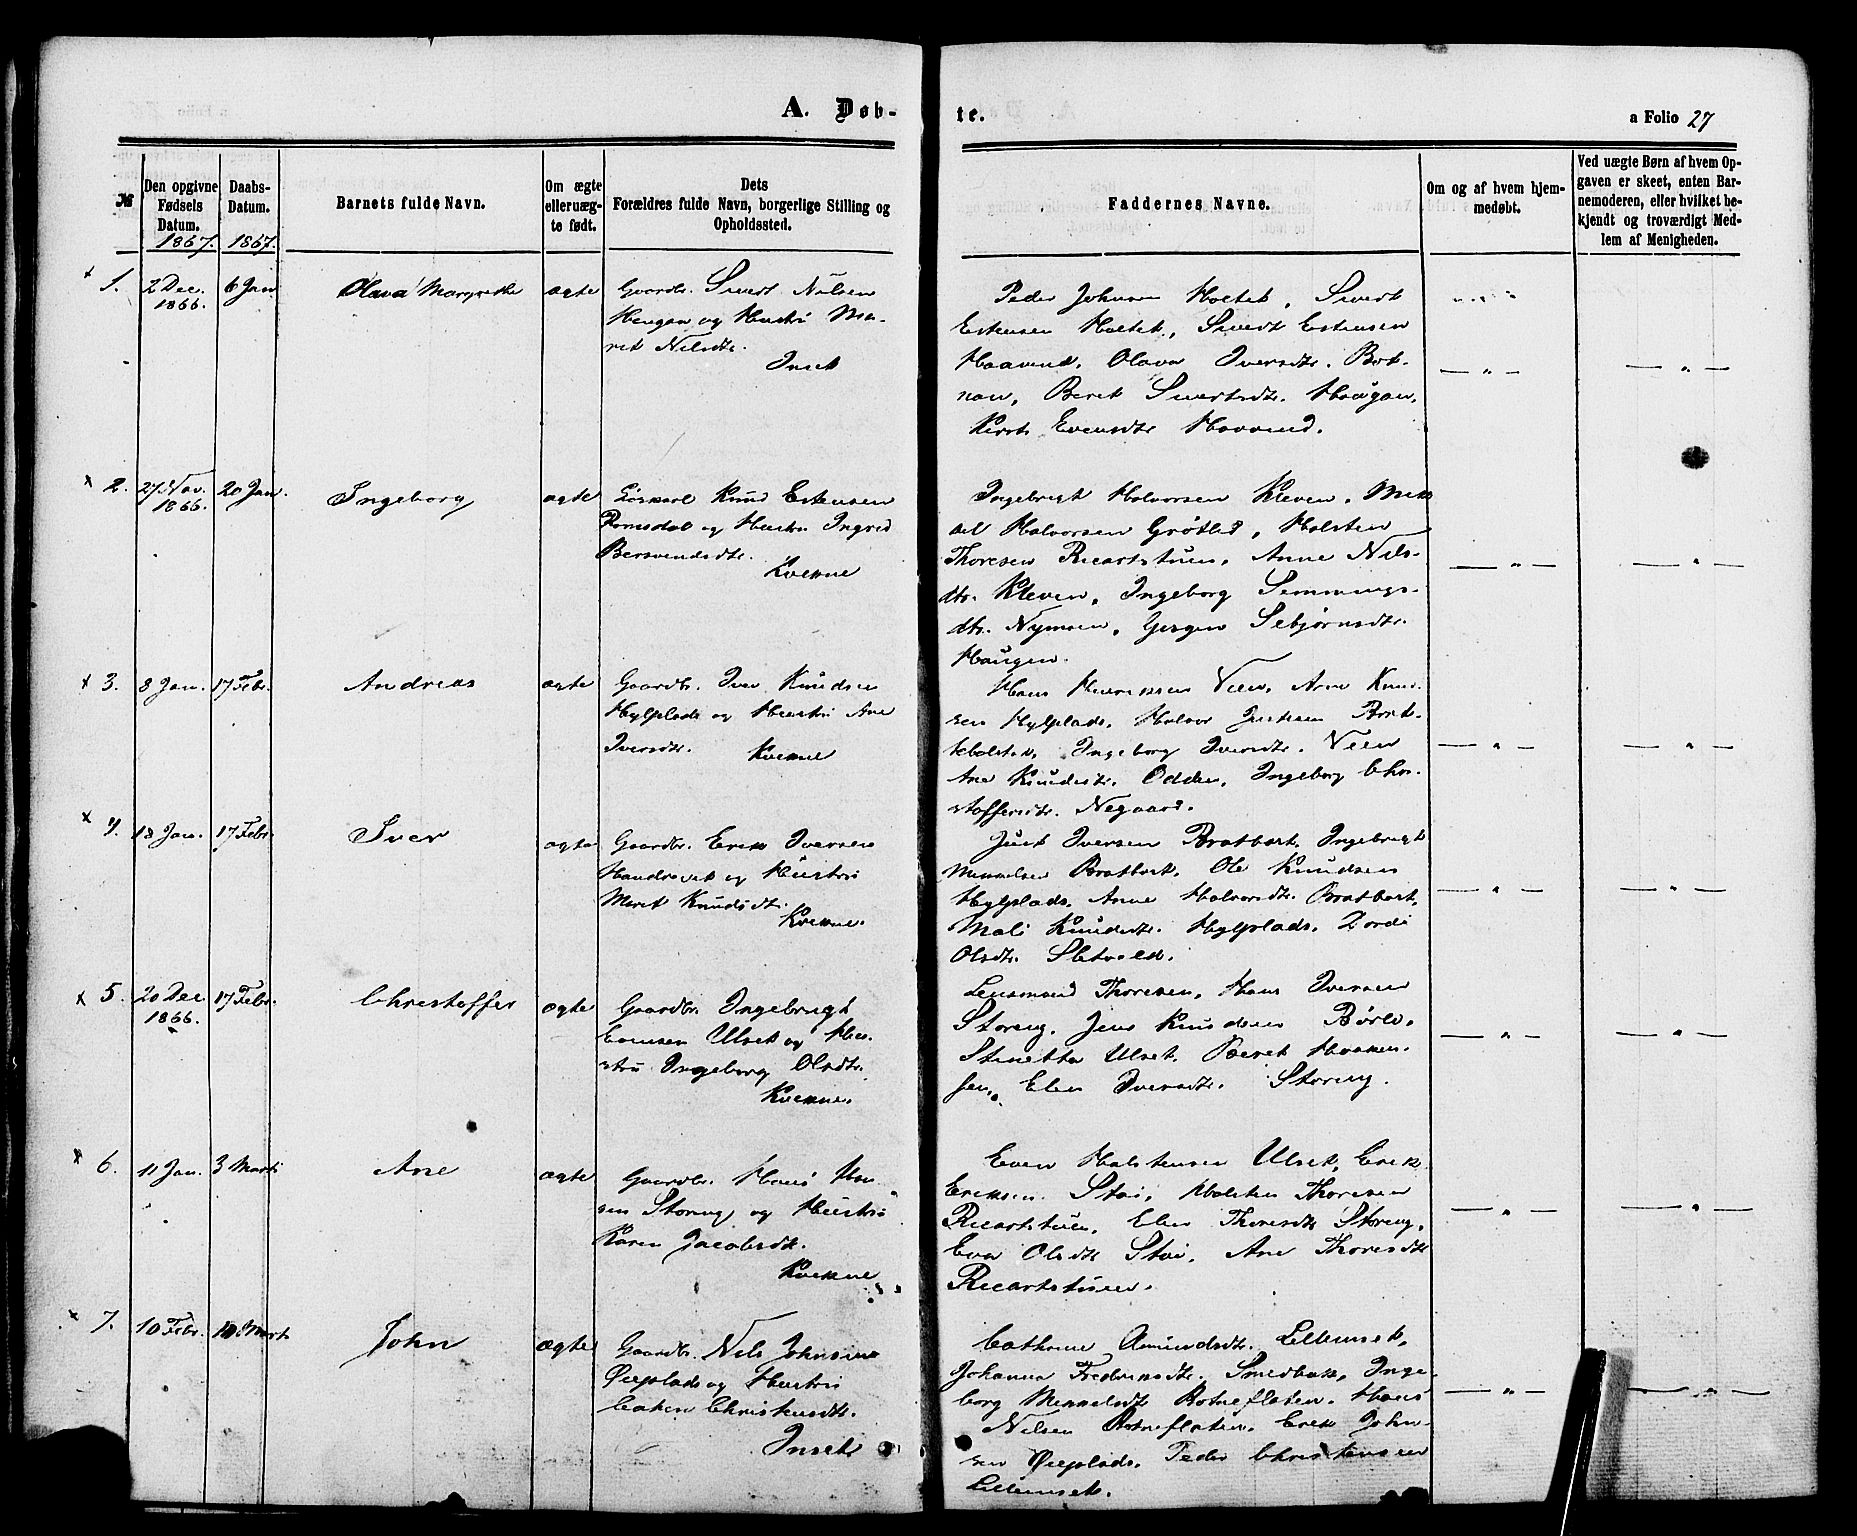 A. Døb-
te.
a Folio 27
№
Den opgivne Fødsels Datum. 1867.
Daabs-Datum. 1867.
Barnets fulde Navn.
Om ægte eller uæg-te født.
Dets Forældres fulde Navn, borgerlige Stilling og Opholdssted.
Faddernes Navne.
Om og af hvem hjem-medøbt.
Ved uægte Børn af hvem Op-gaven er skeet, enten Bar-nemoderen, eller hvilket be-kjendt og troværdigt Med-lem af Menigheden.
1. 2 Dec. 1866. 6 Jan Olava Margrethe ægte
Gaardbr. Sivert Nilsen
Haugan og Hustru Ma-
rit Nilsdtr.
Inset
Peder Johnsen Holtet, Sivert
Estensen Holtet, Sivert Estensen
Haavind, Olava Iversdtr. Bot-
nan, Beret Sivertsdtr. Haugan,
Kirst. Evensdtr Haavind.
2. 27 Nov. 1866. 20 Jan. Ingeborg ægte
Løskarl Knud Estensen
Romsdal og Hustru Ingrid
Bersvendsdtr.
Kvikne
Ingebrigt Halvorsen Kleven, Mik
ael Halvorsen Grøtlid, Halsten
Thoresen Ricartstuen, Anne Nils-
dtr. Kleven, Ingeborg Semmings-
dtr. Nymoen, Sebjørnsdtr.
Haugen.
3. 8 Jan. 17 Febr. Andreas ægte
Gaardbr. Iver Knudsen
Hylplads og Hustru Ane
Iversdtr. Kvikne
Hans Henriksen Veen, Arne Knud-
sen Hylplads, Halvor
Ingeborg Iversdtr. Veen
Ane Knudsdtr. Odden, Ingeborg Chri-
stoffersdtr. Negaard.
4. 18 Jan. 17 Febr. Iver ægte
Gaardbr. Erik Iversen
og Hustru
Meret Knudsdtr.
Kvikne.
Just Iversen Bratbort, Ingebrigt
Mikkelsen Bratbort, Ole Knudsen
Hylplads, Anne Halvorsdtr. Bratbort,
Mali Knudsdtr. Hylplads, Zordi
Olsdtr. Sletvold.
5. 20 Dec 1866. 17 Febr. Christoffer ægte
Gaardbr. Ingebrigt
Ulset og Hu-
stru Ingeborg Olsdtr.
Kvikne.
Lensmand Thoresen, Hans Iversen
Storeng, Jens Knudsen
Stinetta Ulset, Beret Haaken-
sen, Elen Iversdtr. Storeng.
6. 11 Jan. 3 Marts Ane ægte
Gaardbr. Hans Han-
sen Storeng og Hustru
Karen Jacobsdtr.
Kvikne
Even Halstensen Ulset, Erik
Eriksen Stai, Halsten Thoresen
Ricartstuen, Elen Thoresdtr Storeng,
Eva Olsdtr Stai, Ane Thoresdtr
Ricartstuen.
7. 10 Febr. 10 Marts John ægte
Gaardbr. Nils Johnsen
Øieplads og Hustru
Christensdtr.
Inset
Cathrine Amundsdtr. Lilleinset,
Johanna Fredriksdtr. Smedbak, Inge-
borg Mikkelsdtr Botnefloten, Hans
Nilsen Botnefloten, Erik John-
sen Øieplads, Peder Christensen
Lilleinset.